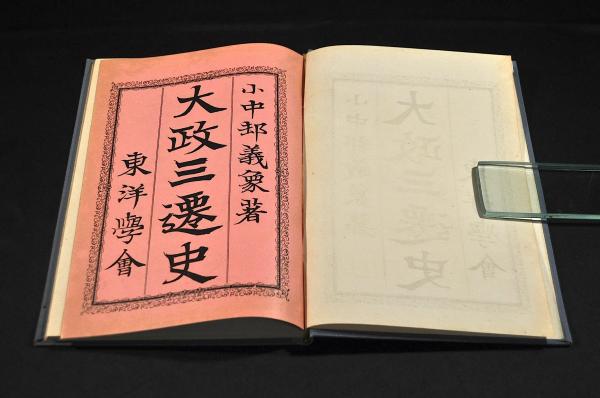 小中邨義象著
大政三遷史
東洋學會